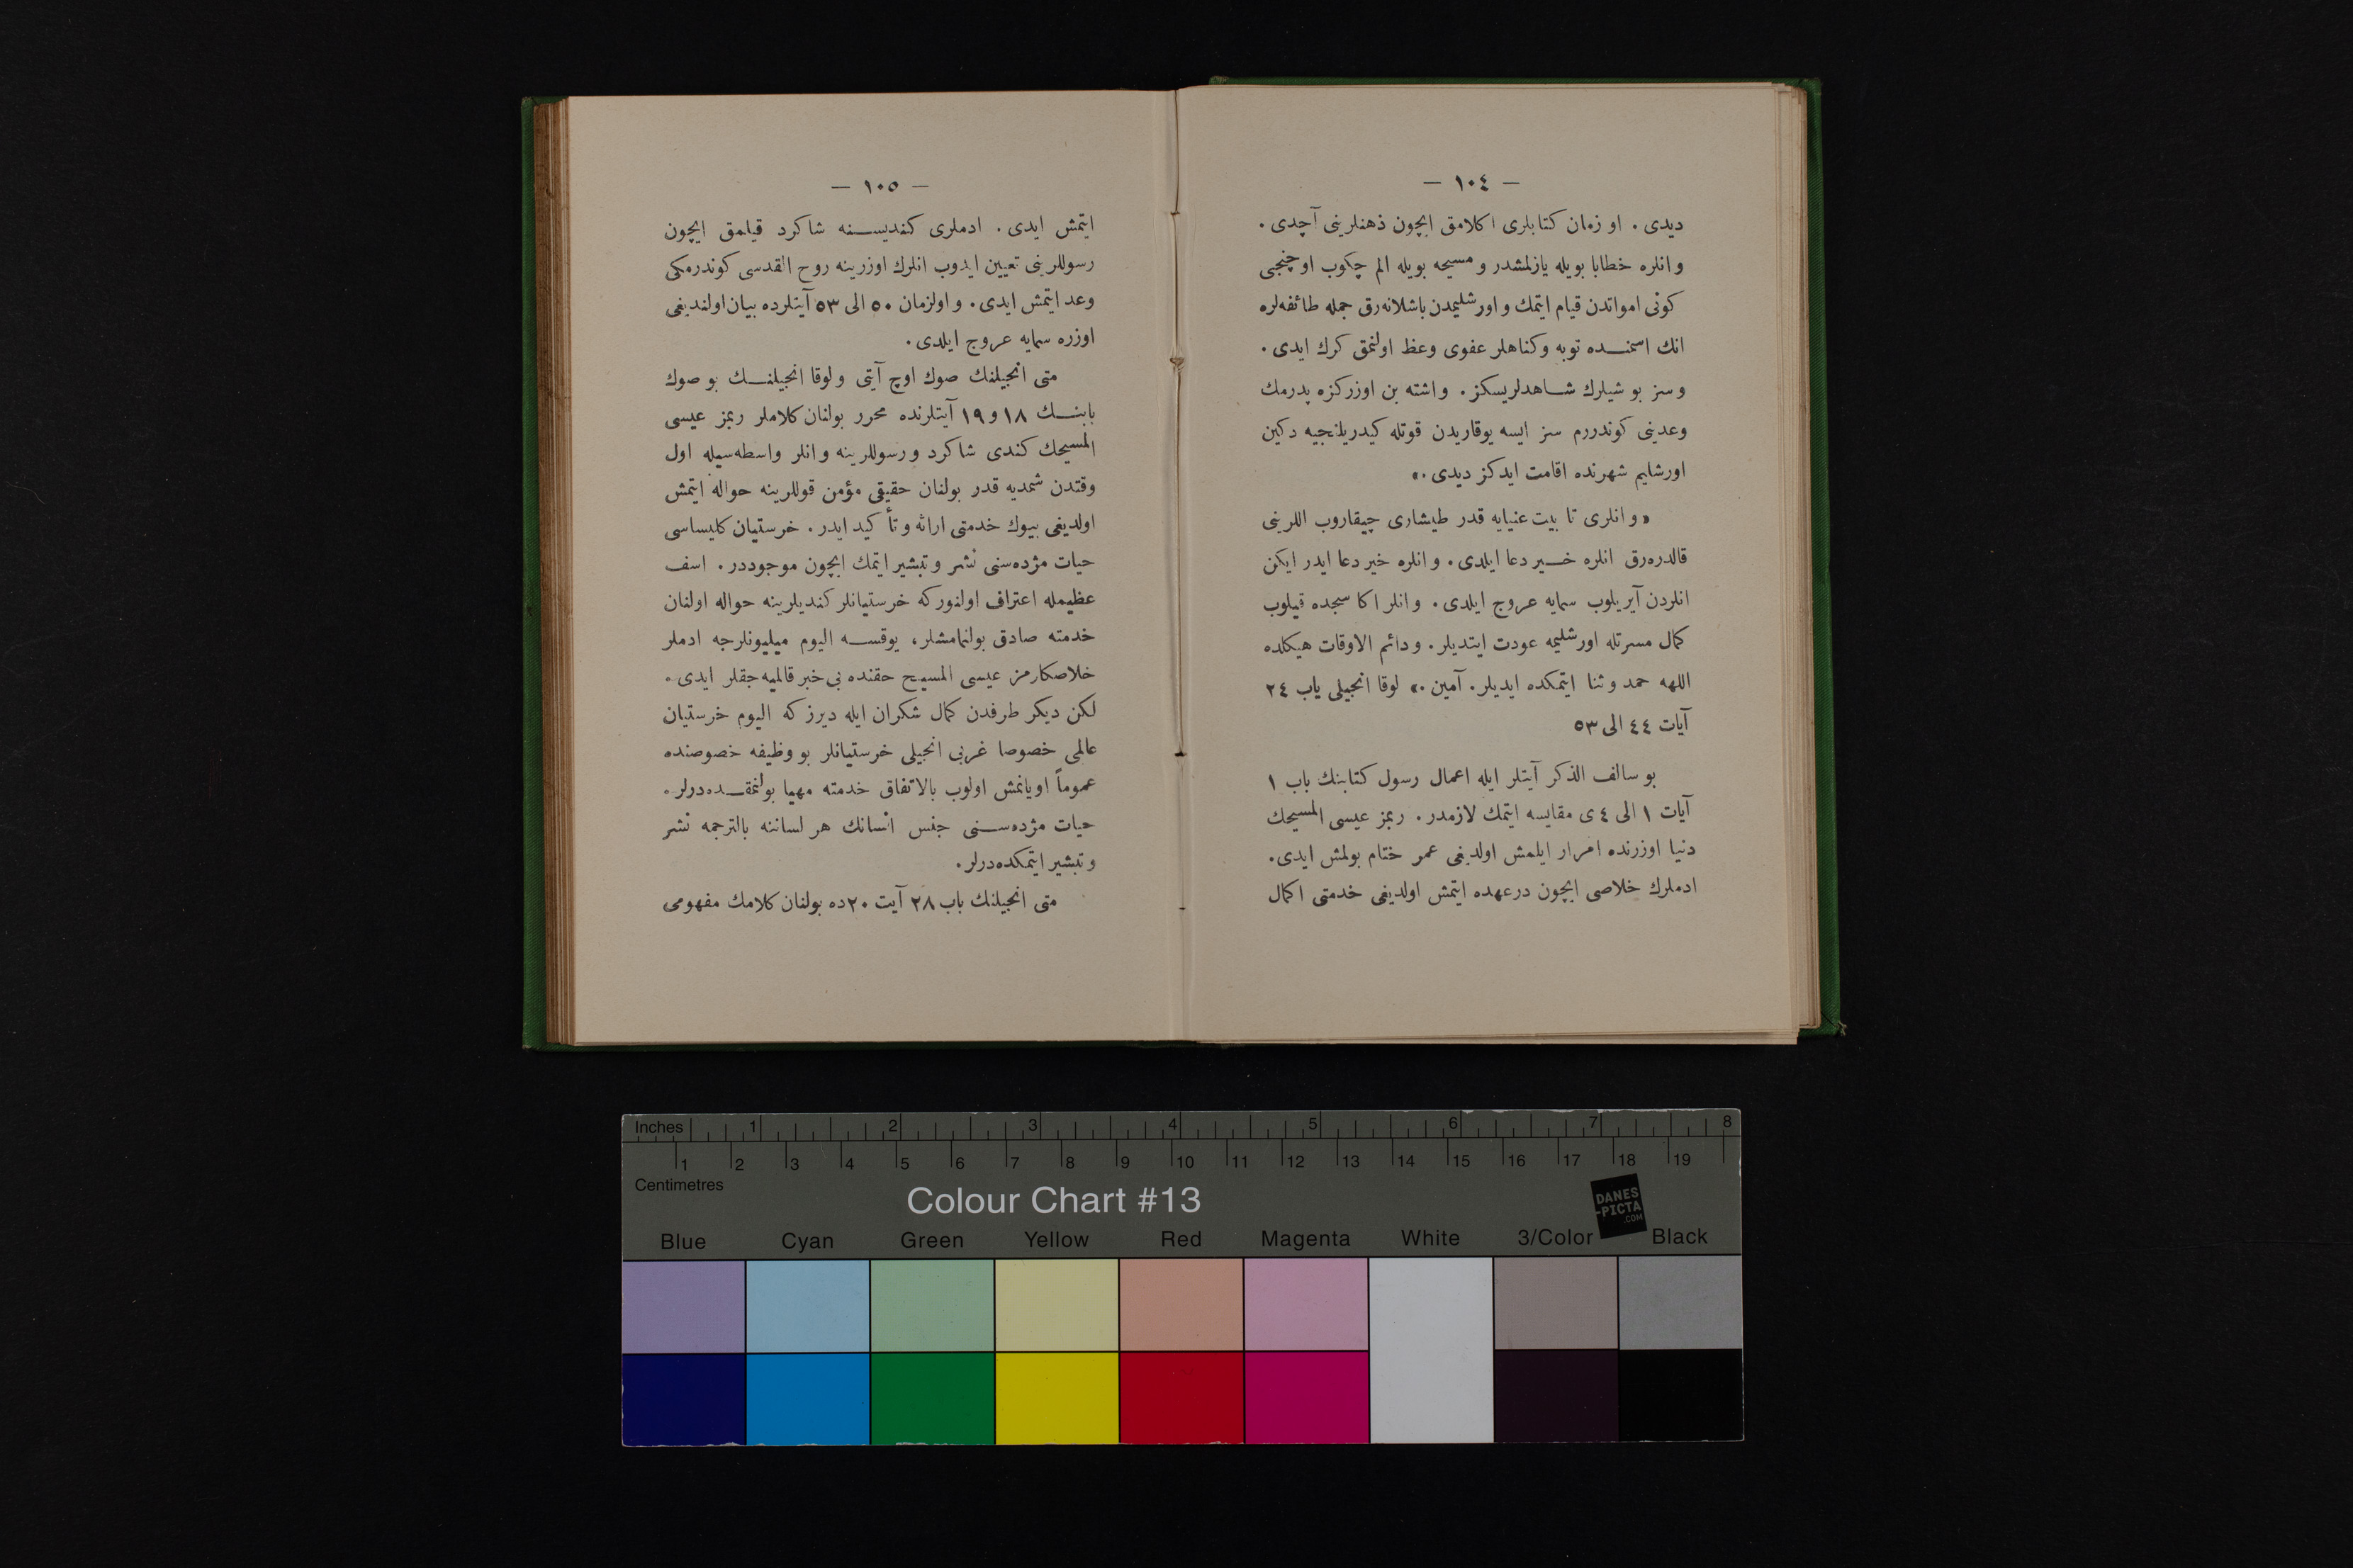 — ١٠٤ —
دیدی . او زمان كتابلری اكلامق ایچون ذهنلرینی آچدی .
و انلره خطابا بویله یازلمشدر و مسیحه بویله الم چكوب اوچنجی
كونی امواتدن قیام ایتمك و اورشلیمدن باشلانه‌رق جمله طائفه‌لره
انك اسمنـده توبه وكناهلر عفوی وعظ اولنمق كرك ایدی .
و سز بو شیلرك شـاهدلریسكز . و اشته بن اوزركزه پدرمك
وعدینی كوندررم سز ایسه یوقاریدن قوتله كیدریلنجیه دكین
اورشلیم شهرنده اقامت ایدكز دیدی .»
« و انلری تا بیت عنیایه قدر طیشاری چیقاروب اللرینی
قالدره‌رق انلره خـیر دعا ایلدی . و انلره خیر دعا ایدر ایكن
انلردن آیریلوب سمایه عروج ایلدی . و انلر اكا سجده قیلوب
كمال مسرتله اورشلیمه عودت ایتدیلر . و دائم الاوقات هیكلده
اللهه حمد و ثنا ایتمكده ایدیلر . آمین .» لوقا انجیلی یاب ٢٤
آیات ٤٤ الی ٥٣
بو سالف الذكر آیتلر ایله اعمال رسول كتابنك باب ١
آیات ١ الی ٤ ی مقایسه ایتمك لازمدر . ربمز عیسی المسیحك
دنیا اوزرنده امرار ایلمش اولدیغی عمر ختام بولمش ایدی.
ادملرك خلاصی ایچون درعهده ایتمش اولدیغی خدمتی اكمال
— ١٠٥ —
ایتمش ایدی . ادملری كندیسـنه شاكرد قیلمق ایچون
رسوللرینی تعیین ایدوب انلرك اوزرینه روح القدسی كوندرمكی
وعد ایتمش ایدی. و اولزمان ٥٠ الی ٥٣ آیتلرده بیان اولندیغی
اوزره سمایه عروج ایلدی.
متی انجیلنك صوك اوچ آیتی ولوقا انجیلنـك بو صوك
بابنـك ١٨ و ١٩ آیتلرنده محرر بولنان كلاملر ربمز عیسی
المسیحك كندی شاكرد و رسوللرینه و انلر واسطه‌سیله اول
وقتدن شمدیه قدر بولنان حقیقی مؤمن قوللرینه حواله ایتمش
اولدیغی بیوك خدمتی ارائه و تأكید ایدر. خرستیان كلیساسی
حیات مژده‌سنی نشر و تبشیر ایتمك ایچون موجوددر. اسف
عظیمله اعتراف اولنوركه خرستیانلر كندیلرینه حواله اولنان
خدمته صادق بولنمامشلر، یوقسـه الیوم میلیونلرجه ادملر
خلاصكارمز عیسی المسیح حقنده بی خبر قالمیه‌جقلر ایدی .
لكن دیكر طرفدن كمال شكران ایله دیرز كه الیوم خرستیان
عالمی خصوصا غربی انجیلی خرستیانلر بو وظیفه خصوصنده
عموماً اویانمش اولوب بالاتفاق خدمته مهیا بولنمقـده‌درلر .
حیات مژده‌سـنی جنس انسانك هر لساننه بالترجمه نشر
و تبشیر ایتمكده‌درلر.
متی انجیلنك باب ٢٨ آیت ٢٠ده بولنان كلامك مفهومی
Inches 1 2 3 4 5 6 7 8
1 2 3 4 5 6 7 8 9 10 11 12 13 14 15 16 17 18 19
Centimetres
Colour Chart #13
DANES
-PICTA
.COM
Blue Cyan Green Yellow Red Magenta White 3/Color Black